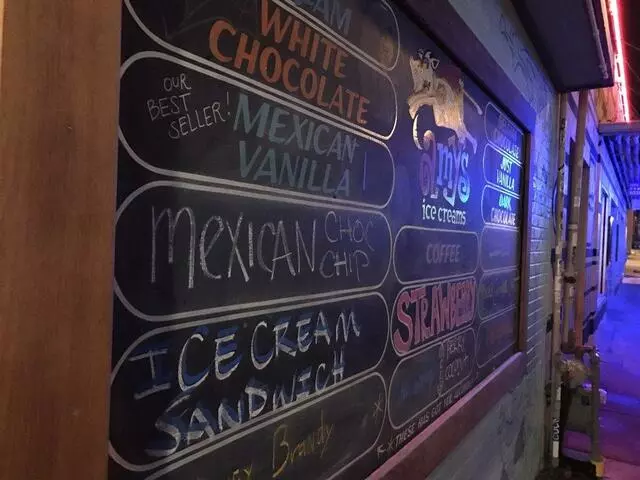 EAM
WHITE
CHOCOLATE
OUR
BEST
SELLER!
MEXICAN
VANILLA
MEXICAN CHOC
CHIP
ICE CREAM
SANDWICH
Brandy
amy's
ice creams
COFFEE
STRAWBERRY
*THESE HAS GOT NUTS
CHOCOLATE
JUST
VANILLA
DARK
CHOCOLATE